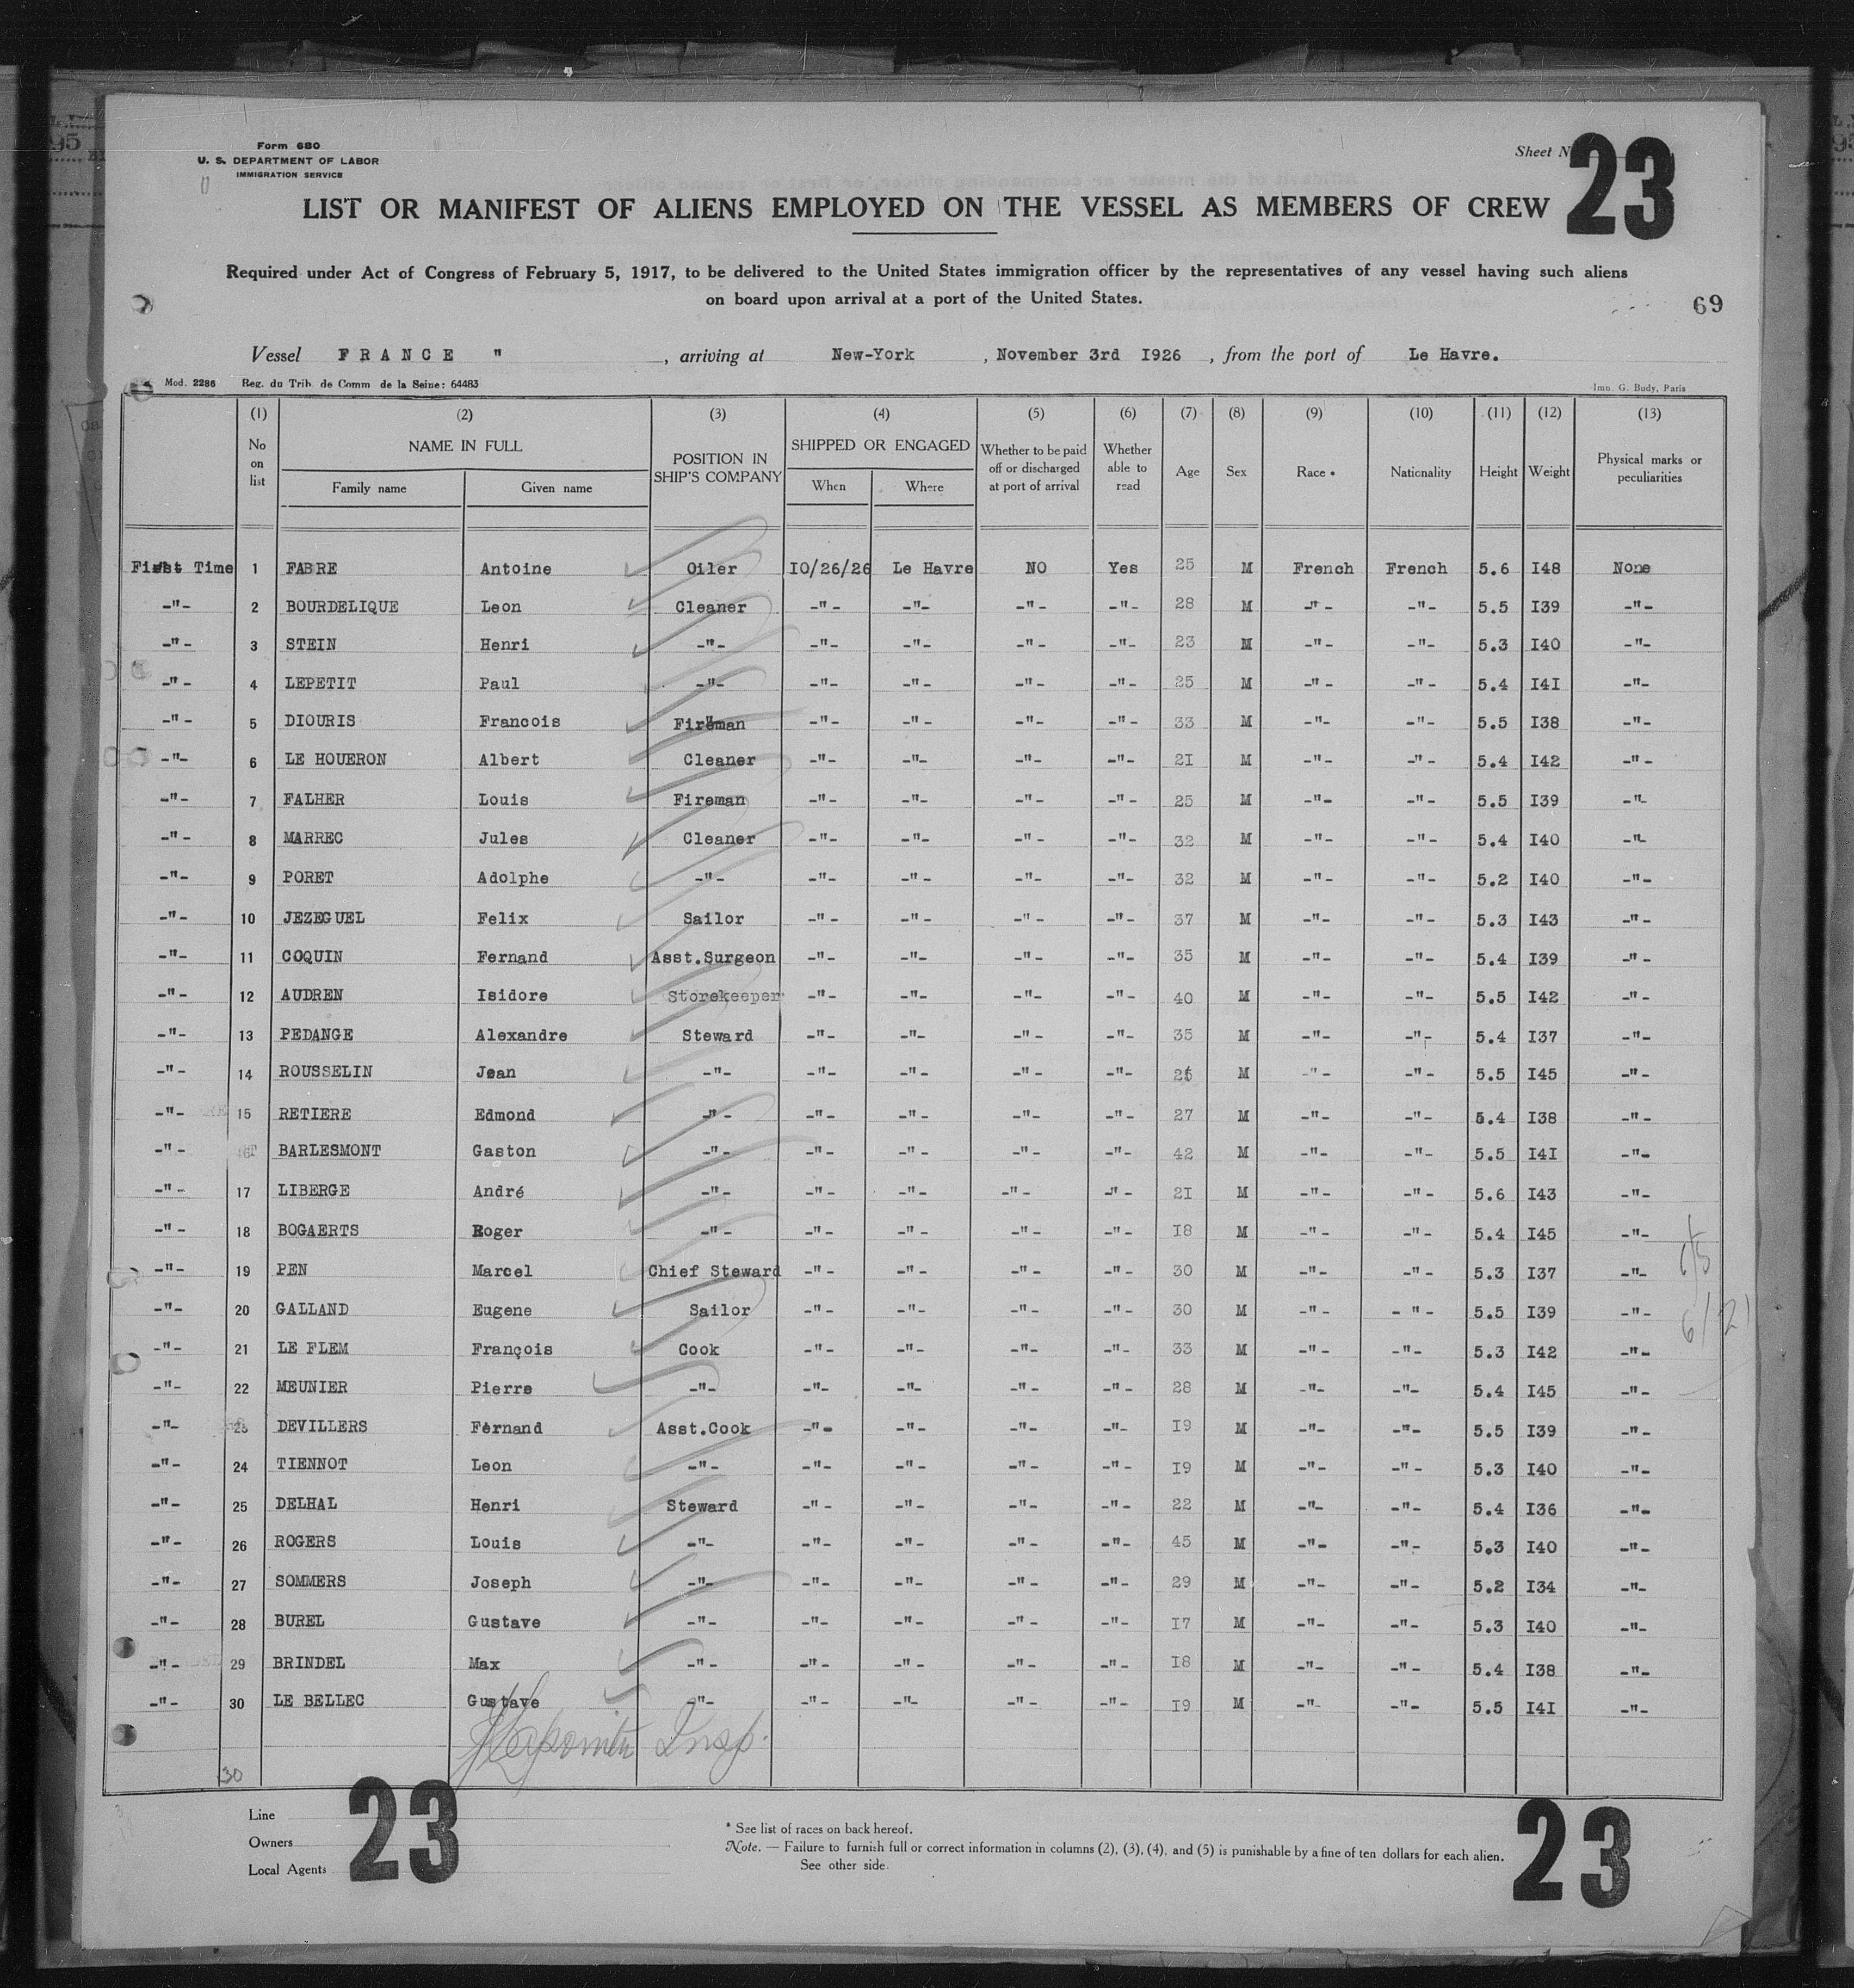 Form 680
U. S. DEPARTMENT OF LABOR
IMMIGRATION SERVICE
Sheet N
23
LIST OR MANIFEST OF ALIENS EMPLOYED ON THE VESSEL AS MEMBERS OF CREW
Required under Act of Congress of February 5, 1917, to be delivered to the United States immigration officer by the representatives of any vessel having such aliens
on board upon arrival at a port of the United States.
69
Vessel FRANCE " , arriving at New-York , November 3rd I926 , from the port of Le Havre.
Mod. 2286 Reg. du Trib. de Comm de la Seine: 64483 Imp. G. Budy, Paris
(1) (2) (3) (4) (5) (6) (7) (8) (9) (10) (11) (12) (13)
No on list NAME IN FULL Family name Given name POSITION IN SHIP'S COMPANY SHIPPED OR ENGAGED When Where Whether to be paid off or discharged at port of arrival Whether able to read Age Sex Race * Nationality Height Weight Physical marks or peculiarities
First Time 1 FABRE Antoine Oiler IO/26/26 Le Havre NO Yes 25 M French French 5.6 I48 None
-"- 2 BOURDELIQUE Leon Cleaner -"- -"- -"- -"- 28 M -"- -"- 5.5 I39 -"-
-"- 3 STEIN Henri -"- -"- -"- -"- -"- 23 M -"- -"- 5.3 I40 -"-
-"- 4 LEPETIT Paul -"- -"- -"- -"- -"- 25 M -"- -"- 5.4 I4I -"-
-"- 5 DIOURIS Francois Fireman -"- -"- -"- -"- 33 M -"- -"- 5.5 I38 -"-
-"- 6 LE HOUERON Albert Cleaner -"- -"- -"- -"- 2I M -"- -"- 5.4 I42 -"-
-"- 7 FALHER Louis Fireman -"- -"- -"- -"- 25 M -"- -"- 5.5 I39 -"-
-"- 8 MARREC Jules Cleaner -"- -"- -"- -"- 32 M -"- -"- 5.4 I40 -"-
-"- 9 PORET Adolphe -"- -"- -"- -"- -"- 32 M -"- -"- 5.2 I40 -"-
-"- 10 JEZEGUEL Felix Sailor -"- -"- -"- -"- 37 M -"- -"- 5.3 I43 -"-
-"- 11 COQUIN Fernand Asst.Surgeon -"- -"- -"- -"- 35 M -"- -"- 5.4 I39 -"-
-"- 12 AUDREN Isidore Storekeeper -"- -"- -"- -"- 40 M -"- -"- 5.5 I42 -"-
-"- 13 PEDANGE Alexandre Steward -"- -"- -"- -"- 35 M -"- -"- 5.4 I37 -"-
-"- 14 ROUSSELIN Jean -"- -"- -"- -"- -"- M -"- -"- 5.5 I45 -"-
-"- 15 RETIERE Edmond -"- -"- -"- -"- -"- 27 M -"- -"- 5.4 I38 -"-
-"- BARLESMONT Gaston -"- -"- -"- -"- -"- 42 M -"- -"- 5.5 I4I -"-
-"- 17 LIBERGE André -"- -"- -"- -"- -"- 2I M -"- -"- 5.6 I43 -"-
-"- 18 BOGAERTS Roger -"- -"- -"- -"- -"- I8 M -"- -"- 5.4 I45 -"-
-"- 19 PEN Marcel Chief Steward -"- -"- -"- -"- 30 M -"- -"- 5.3 I37 -"-
-"- 20 GALLAND Eugene Sailor -"- -"- -"- -"- 30 M -"- -"- 5.5 I39 -"-
-"- 21 LE FLEM François Cook -"- -"- -"- -"- 33 M -"- -"- 5.3 I42 -"-
-"- 22 MEUNIER Pierre -"- -"- -"- -"- -"- 28 M -"- -"- 5.4 I45 -"-
-"- 23 DEVILLERS Fernand Asst.Cook -"- -"- -"- -"- I9 M -"- -"- 5.5 I39 -"-
-"- 24 TIENNOT Leon -"- -"- -"- -"- -"- I9 M -"- -"- 5.3 I40 -"-
-"- 25 DELHAL Henri Steward -"- -"- -"- -"- 22 M -"- -"- 5.4 I36 -"-
-"- 26 ROGERS Louis -"- -"- -"- -"- -"- 45 M -"- -"- 5.3 I40 -"-
-"- 27 SOMMERS Joseph -"- -"- -"- -"- -"- 29 M -"- -"- 5.2 I34 -"-
-"- 28 BUREL Gustave -"- -"- -"- -"- -"- I7 M -"- -"- 5.3 I40 -"-
-"- 29 BRINDEL Max -"- -"- -"- -"- -"- I8 M -"- -"- 5.4 I38 -"-
-"- 30 LE BELLEC Gustave -"- -"- -"- -"- -"- I9 M -"- -"- 5.5 I4I -"-
Insp.
30
Line
Owners
Local Agents
23
* See list of races on back hereof.
Note. — Failure to furnish full or correct information in columns (2), (3), (4), and (5) is punishable by a fine of ten dollars for each alien.
See other side.
23